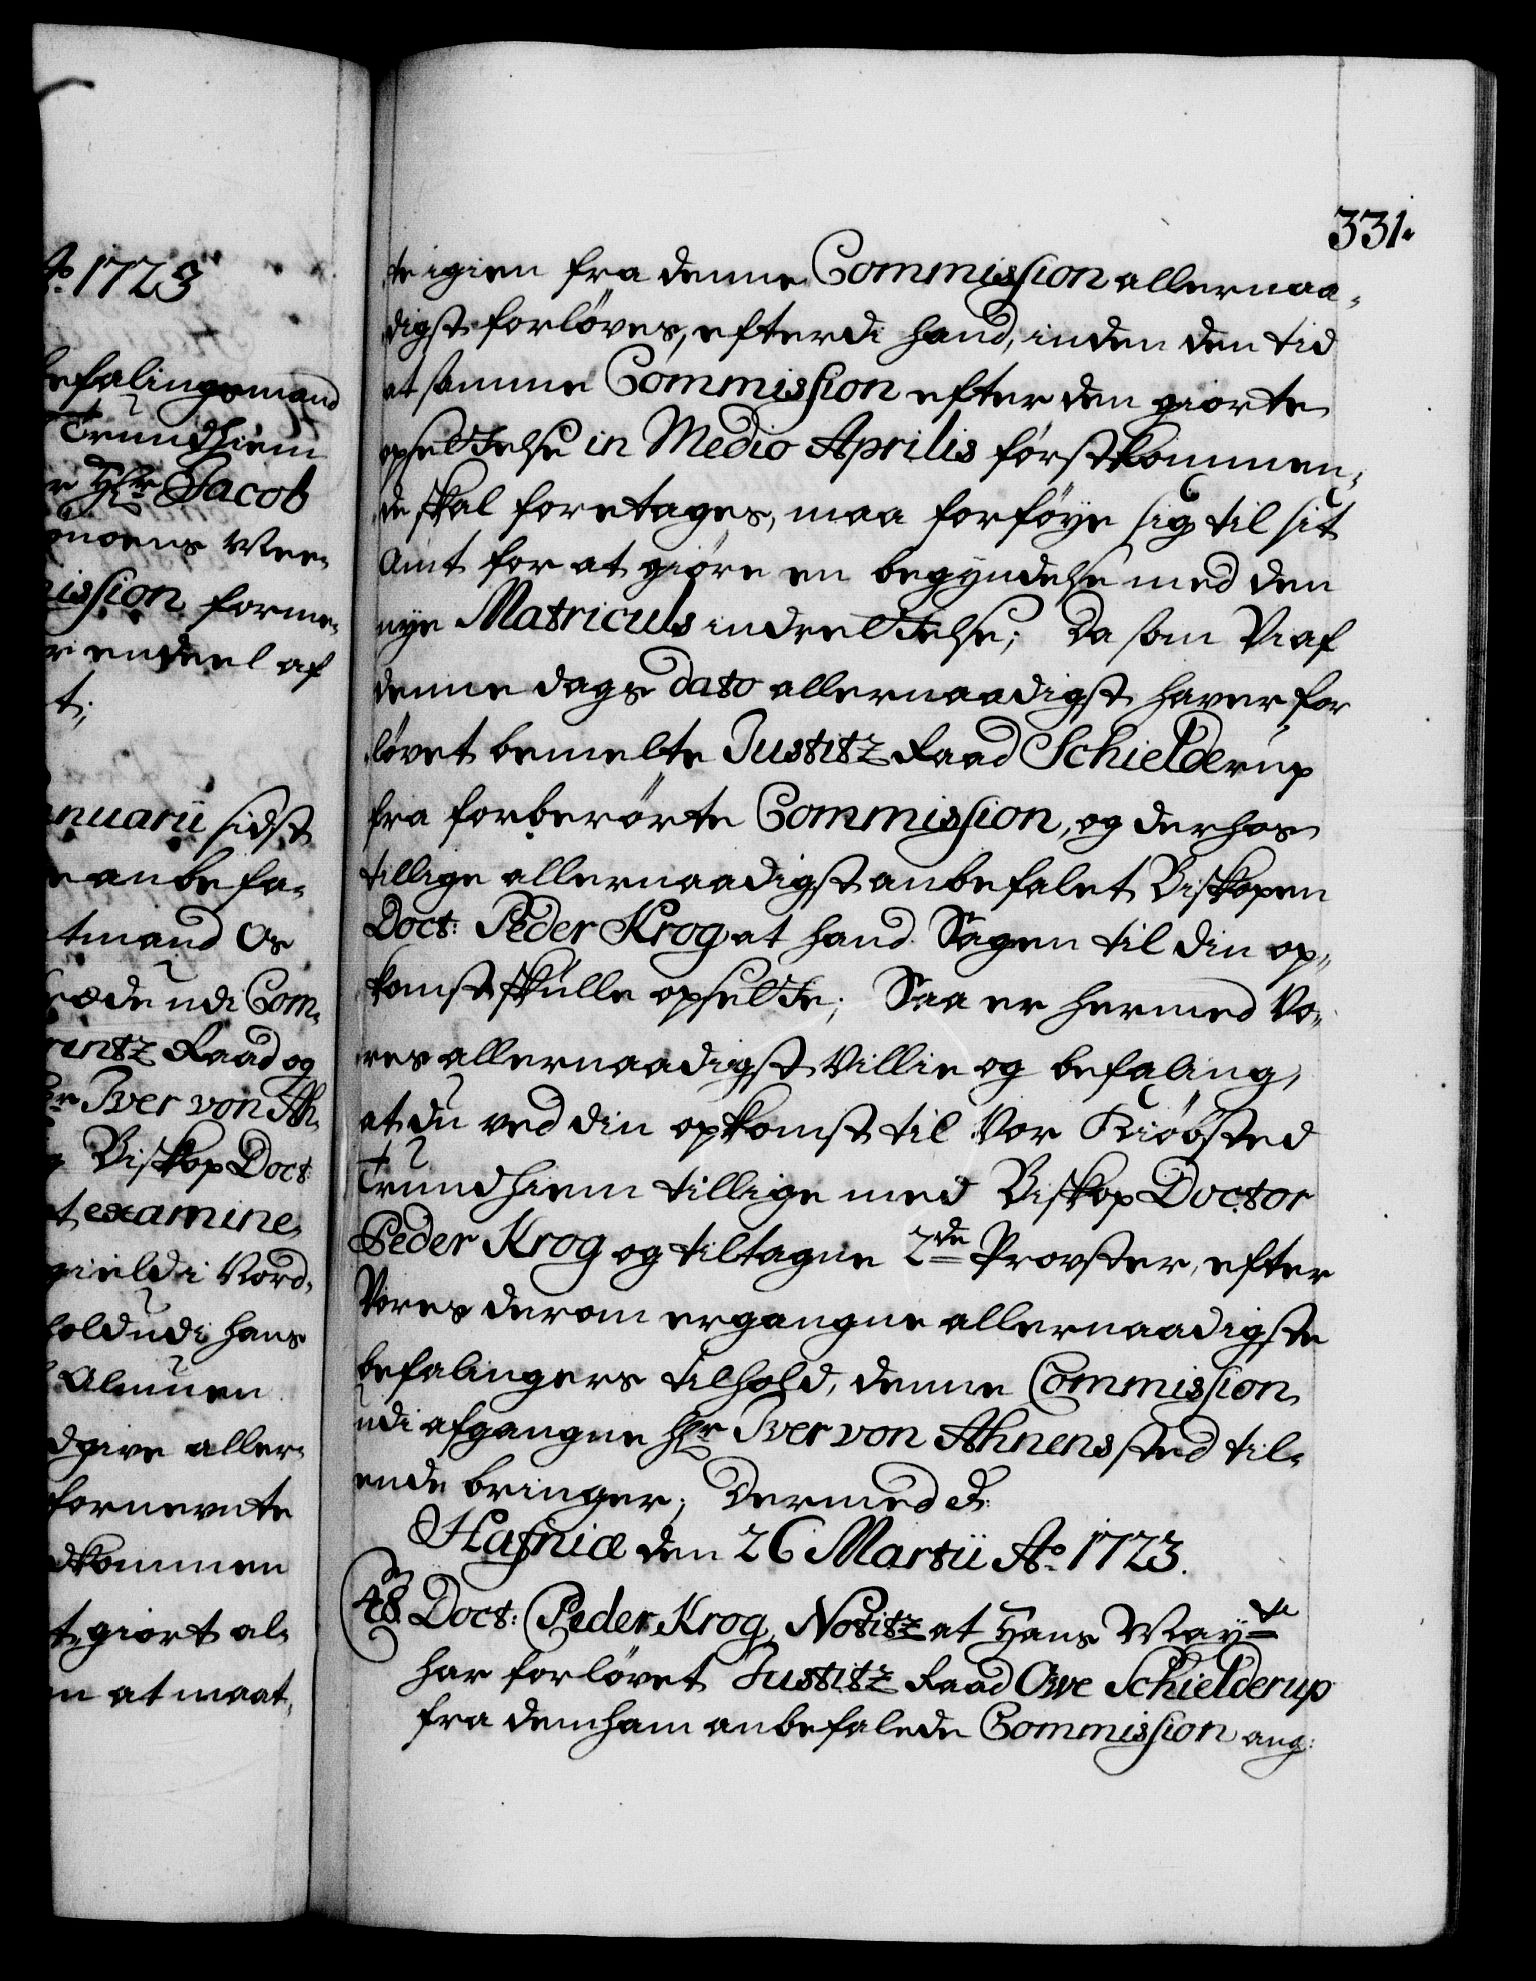 o. 1723
befalingsmand
Trundhiem
r Hr. Jacob
noens Wee-
ission forme-
endeel af
t;
anuarii sidst
anbefa-
tmand Os
udi Com-
Raad og
Iver von Ah-
Biskop Doct:
t examine-
gield i Nord-
hold udi hans
Almuen
dgive aller-
fornevnte
dkommen
t giort al-
n at maat-
331.
te igien fra denne Commission allernaa-
digst forløves, efterdi hand, inden den tid
at samme Commission efter den giorte
opsettelse in Medio Aprilis førstkommen-
de skal foretages, maa forføye sig til sit
Amt for at giøre en begyndelse med den
nye Matriculs indrettelse; Da som Vi af
denne dags dato allernaadigst haver for
løvet bemelte Justitz Raad Schielderup
fra forberørte Commission, og derhos
tillige allernaadigst anbefalet Biskopen
Doct: Peder Krog at hand Sagen til din op-
komst skulle opsette; Saa er hermed Vo-
res allernaadigst Villie og befaling,
at du ved din opkomst til Vor Kiøbsted
Trundhiem tillige med Biskop Doctor
Peder Krog og tiltagne 2de Provster, efter
Vores derom ergangne allernaadigste
befalingers tilhold, denne Commission
udi afgangne Hr Iver von Ahnens sted til-
ende bringer; Dermed &:
Hafniæ den 26 Martii Ao. 1723.
48. Doct: Peder Krog Notitz at Hans May:te
har forløvet Justitz Raad Owe Schielderup
fra den ham anbefalede Commission ang: